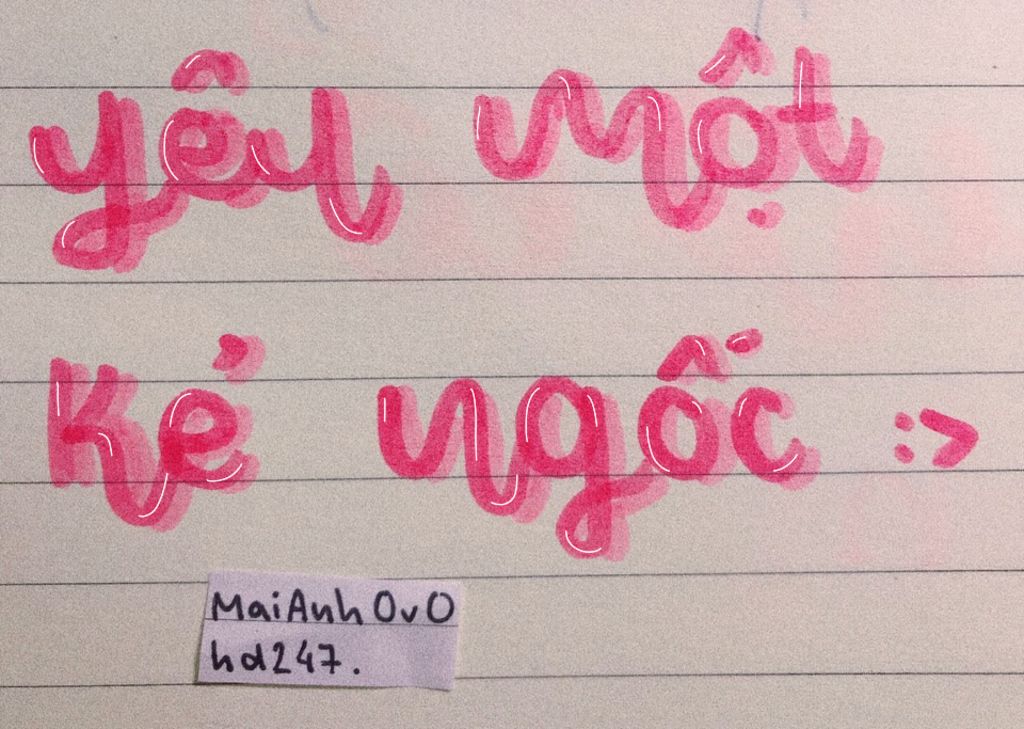 yêu một
Kẻ ngốc :>
MaiAnh OvO
hd247.